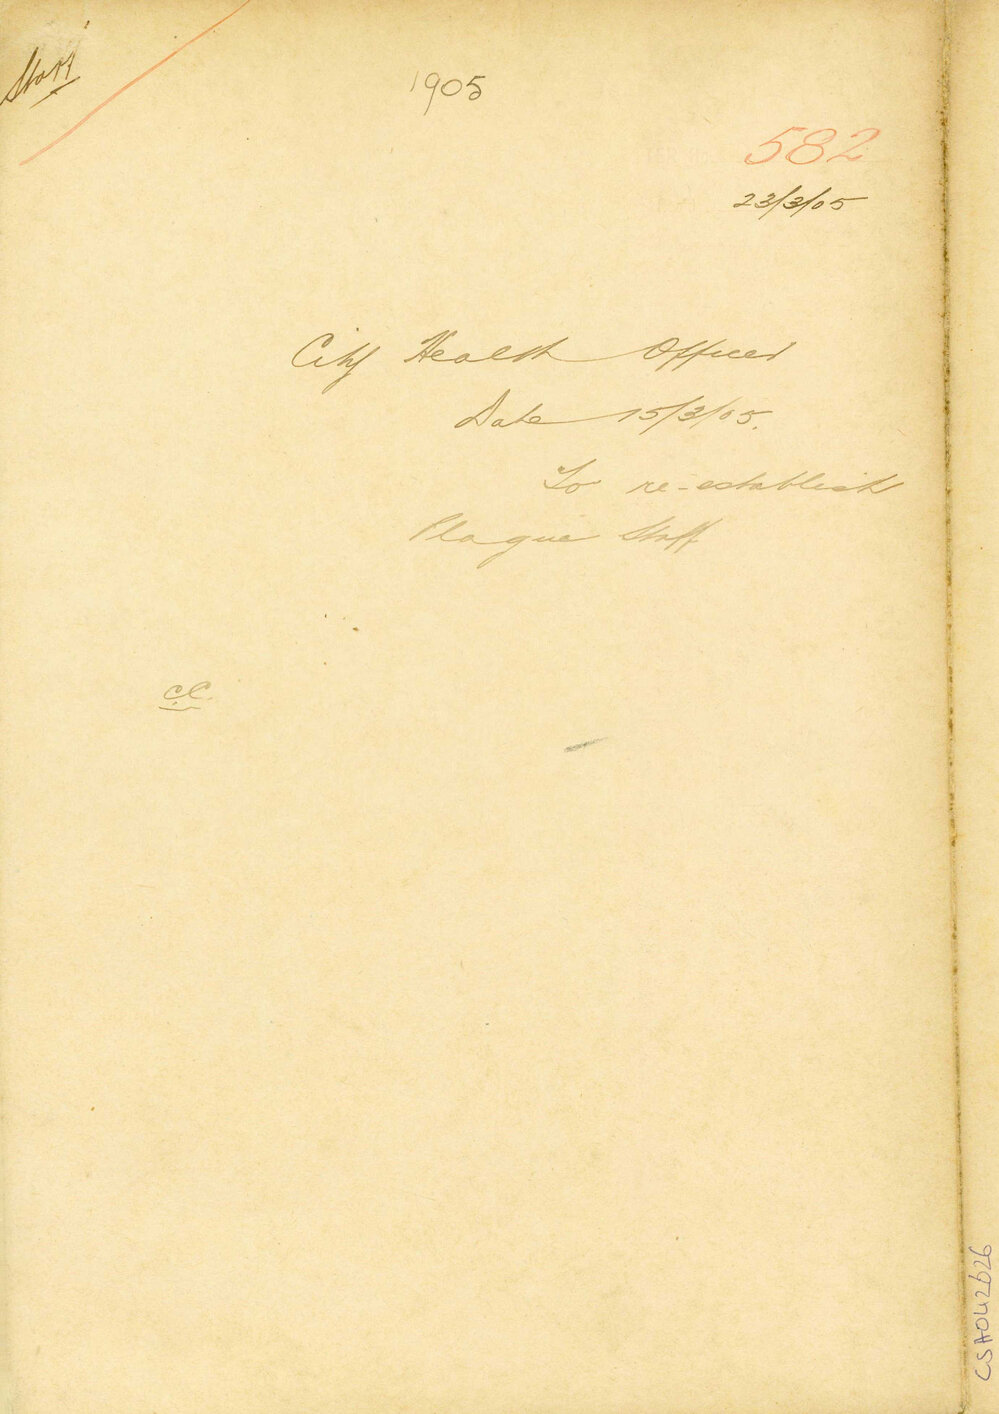 1905
582
23/3/05
City Health Officer
Date 15/3/05.
To re-establish
Plague Staff
C.C.
CSA042626